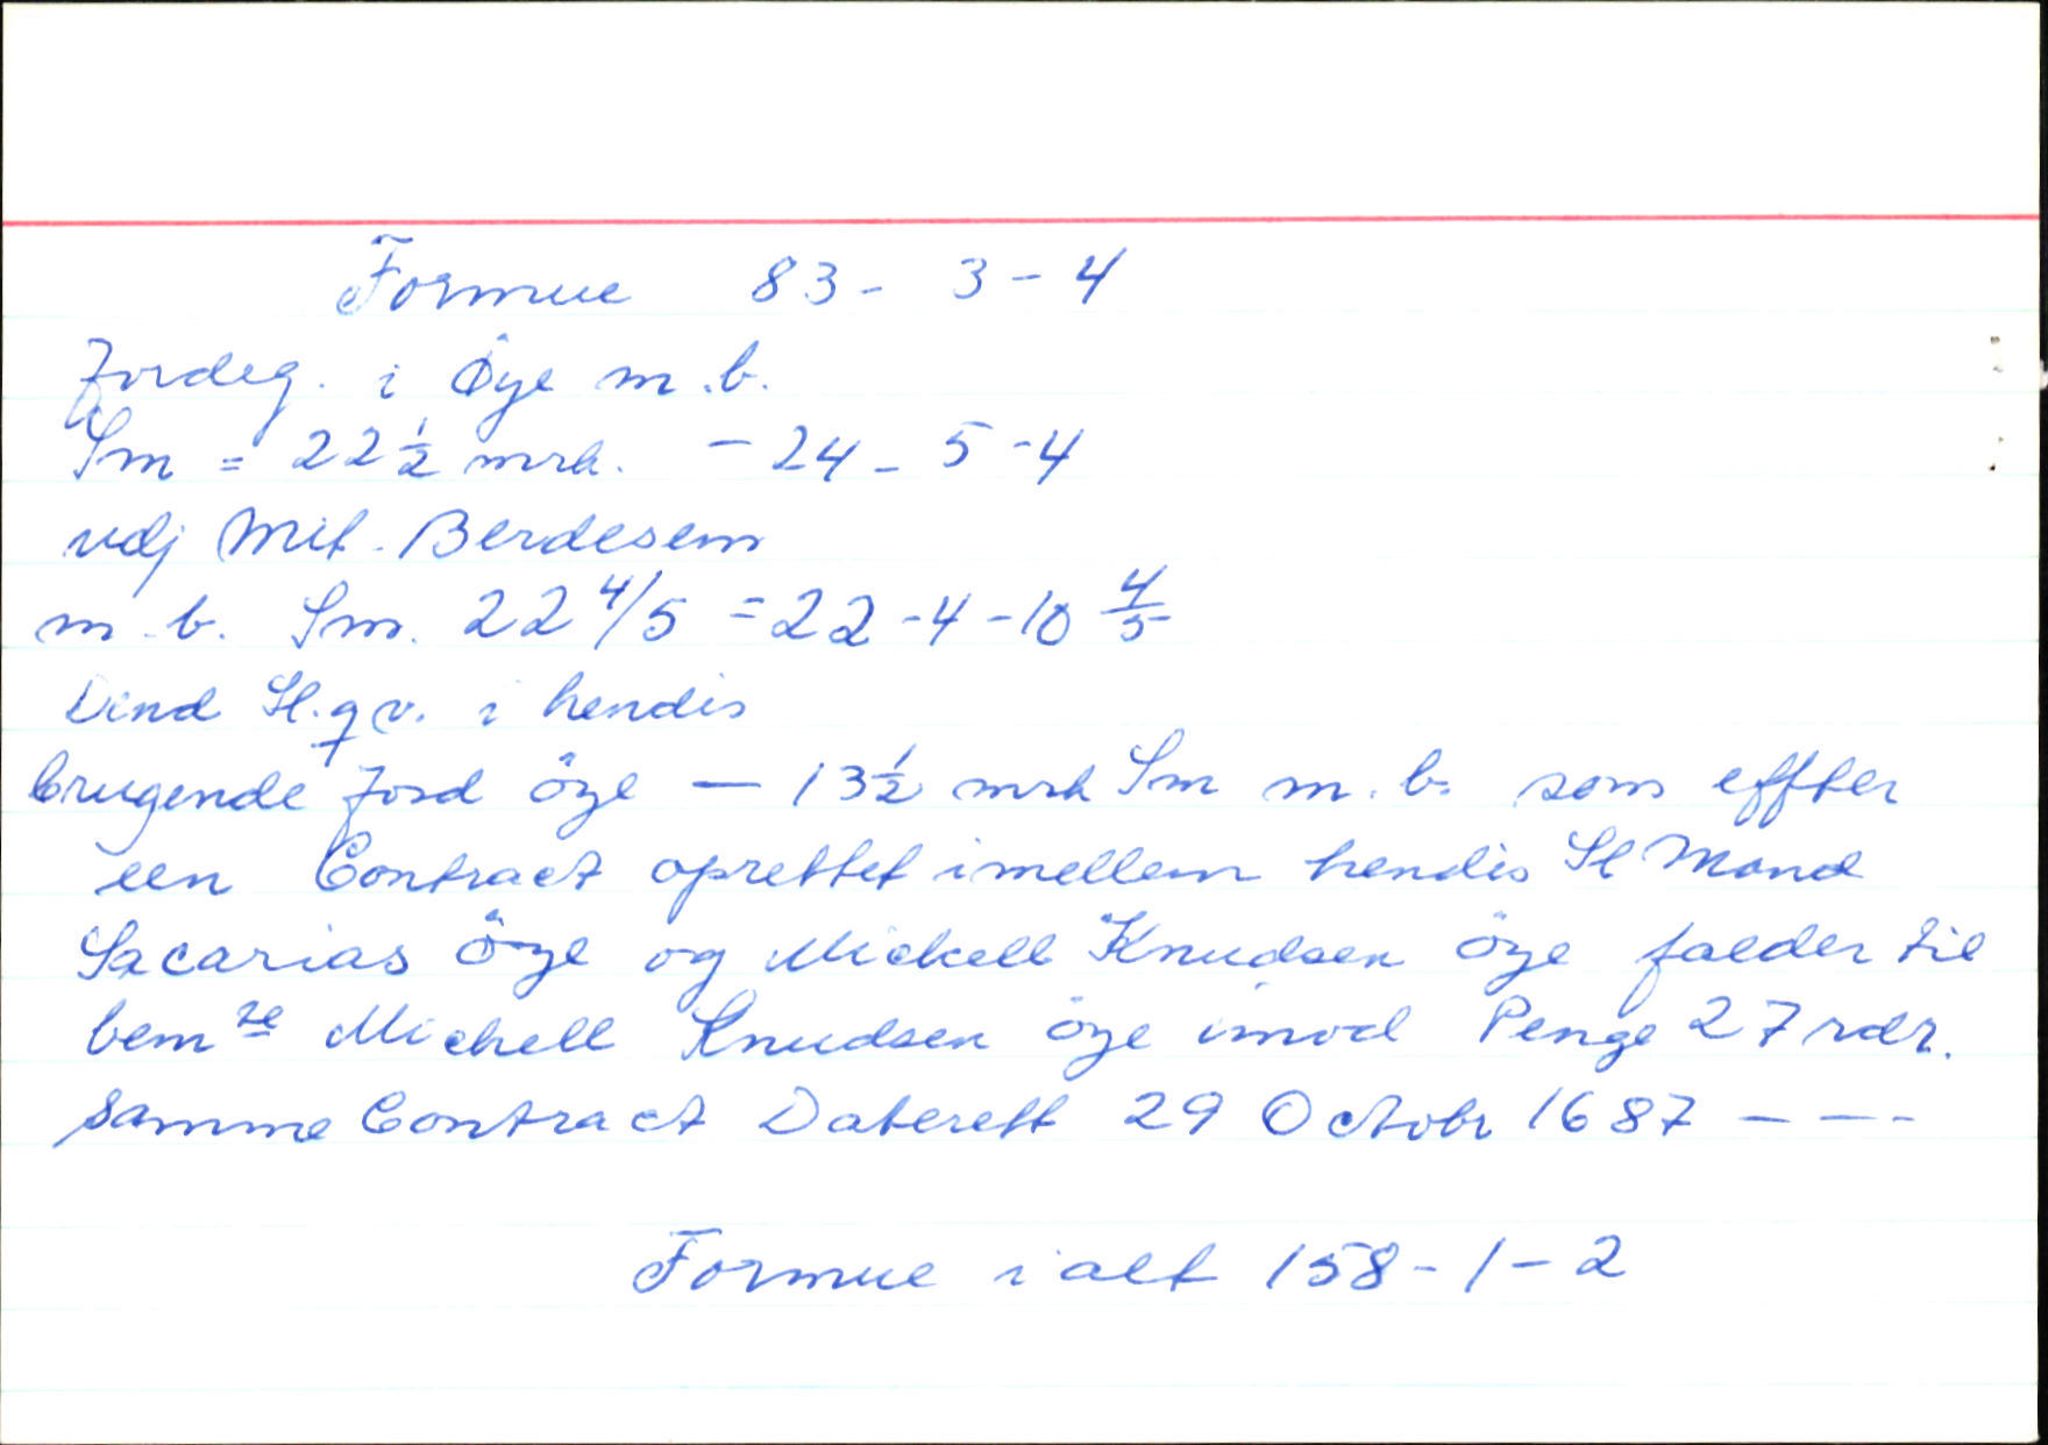 Formue 83 - 3 - 4
Jordeg. i Øye m.b.
Sm = 22 ½ mrk. - 24 - 5 - 4
udj Mit. Berdesem
m.b. Sm. 22 4/5 = 22 - 4 - 10 4/5
Dend Sl. qv. i hendis
brugende Jord öye — 13 ½ mrk Sm m.b. som effter
een Contract oprettet imellem hendis Sl Mand
Sacarias öye og Mickell Knudsen öye falder til
bemte Michell Knudsen öye imod Penge 27 rdr.
Samme Contract Daterett 29 Octobr 1687 - - -
Formue i alt 158 - 1 - 2